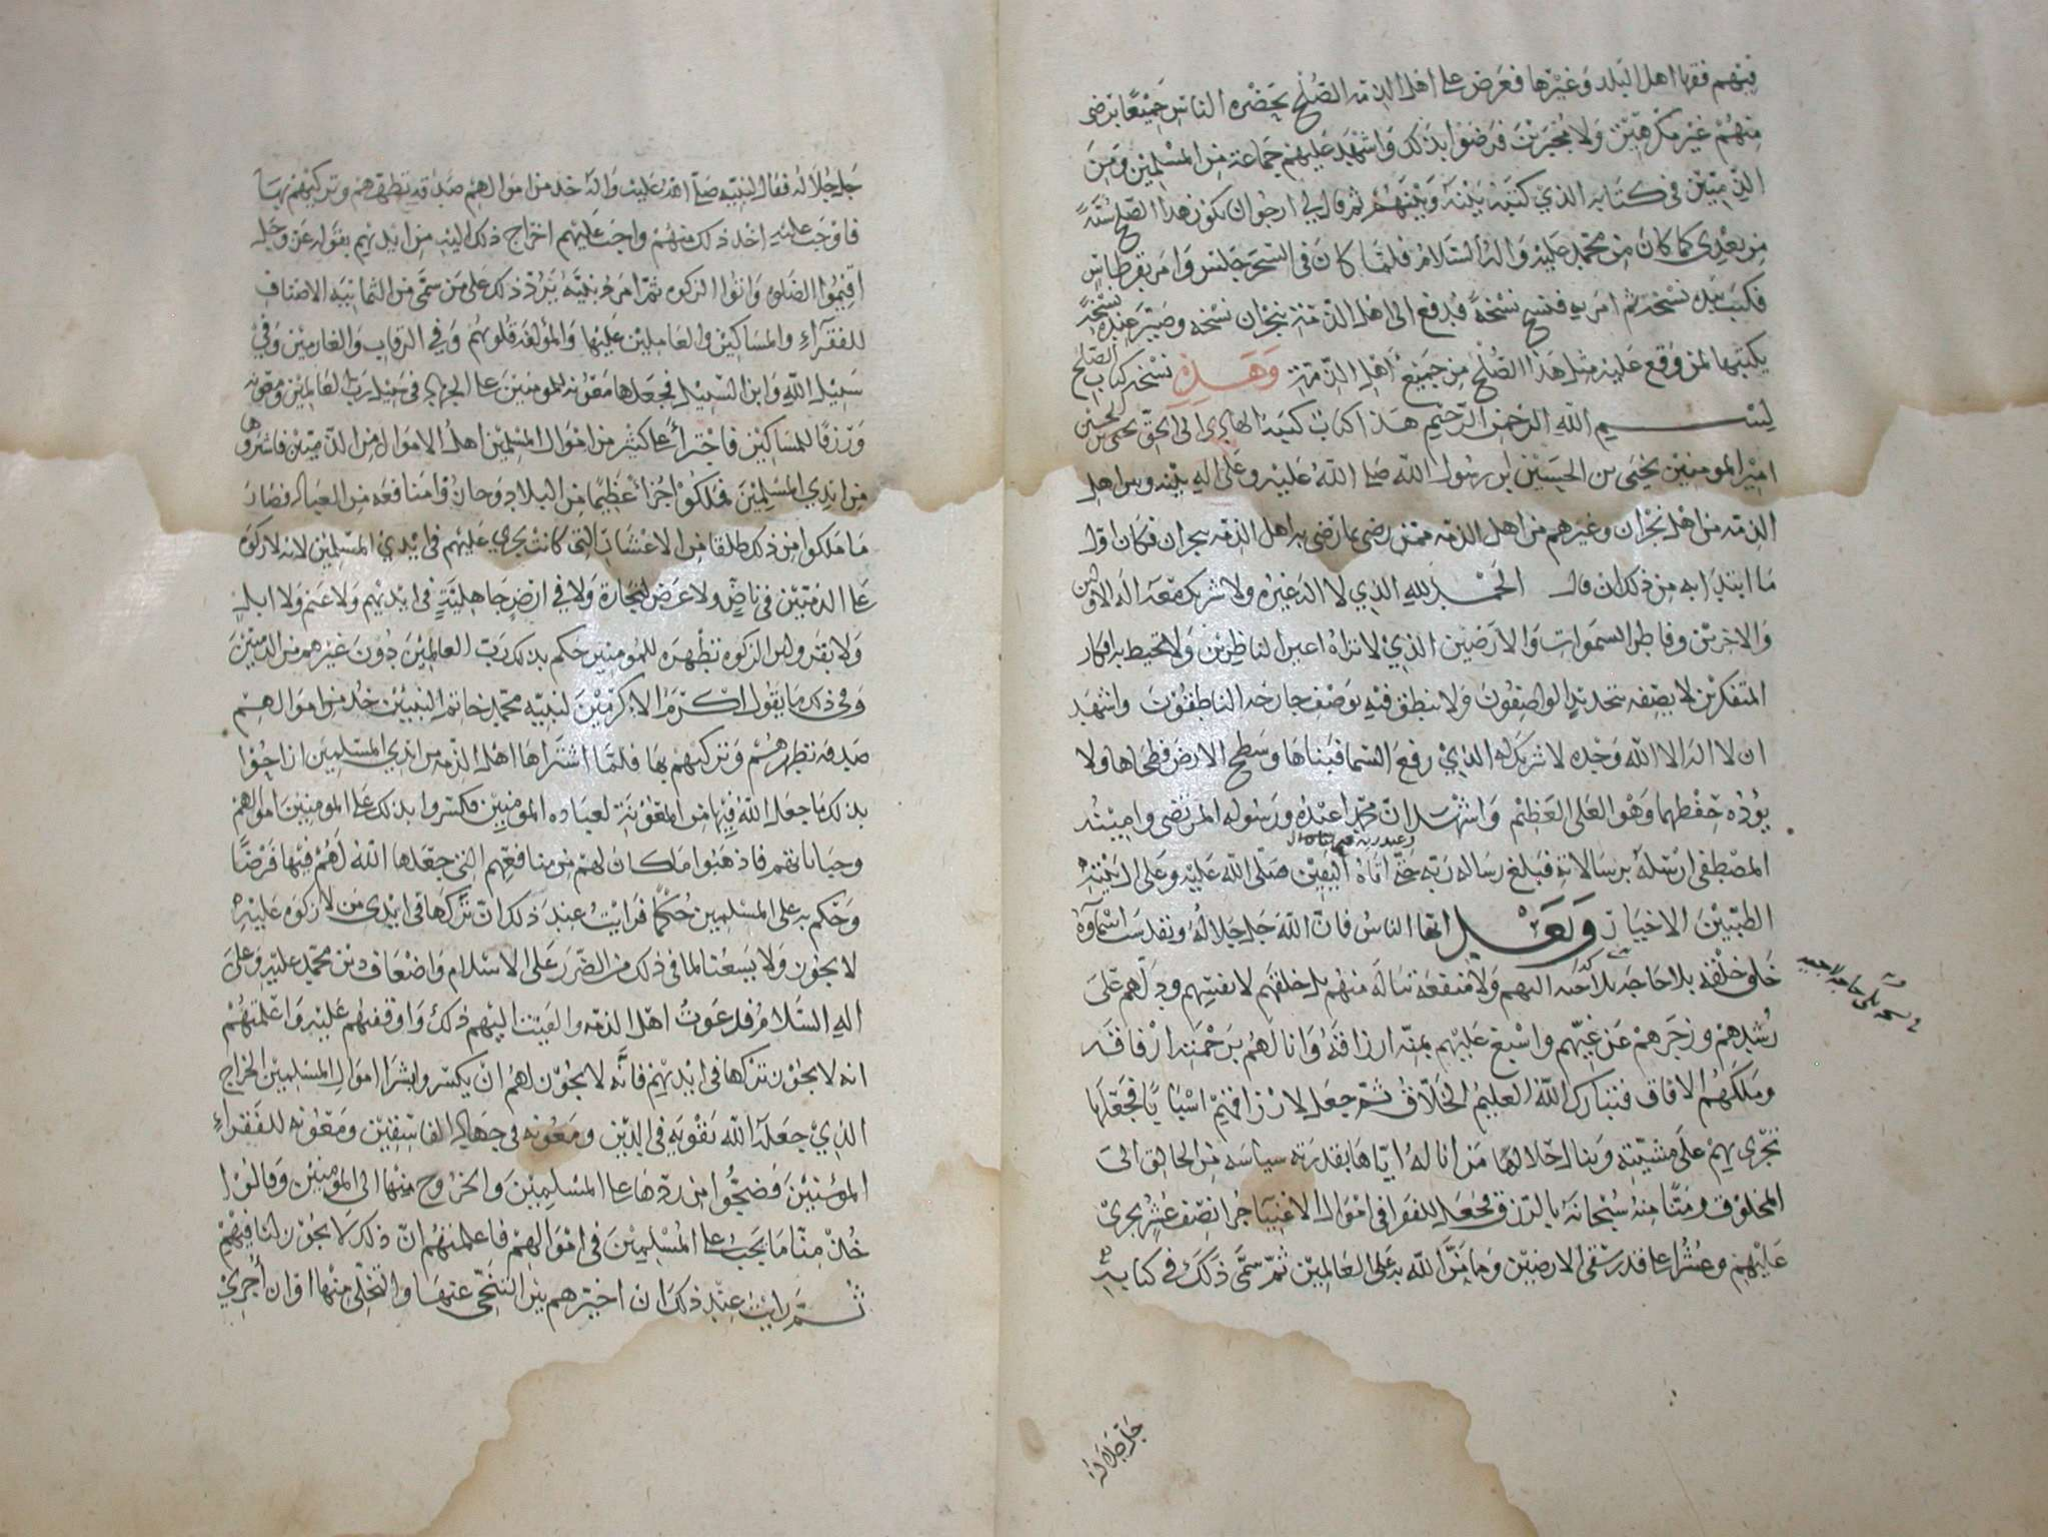 فيهم فقها اهل البلد وغيرها فعرض على اهل الذمه الصلح بحضره الناس جميعا برضى
منهم غير مكرهين ولا مجبرين فرضوا بذلك واشهد عليهم جماعة من المسلمين ومن
الذميين في كتابه الذي كتبه بينه وبينهم ثم قال لي ارجو ان يكون هذا الصلح سنة
من بعدي كما كان من محمد عليه واله السلام فلما كان في السحر جلس وامر بقرطاس
فكتب بيده نسخة ثم امر به فنسخ نسخة فدفع الى اهل الذمة بنجران نسخه وصير عنده نسخة
يكتبها لمن وقع عليه مثل هذا الصلح من جميع اهل الذمة وهذه نسخة كتاب الصلح
بسم الله الرحمن الرحيم هذا كتاب كتبه الهادي الى الحق يحيى بن الحسين
امير المومنين يحيى بن الحسين ابن رسول الله صلى الله عليه وعلى اله بينه وبين اهل
الذمه من اهل نجران وغيرهم من اهل الذمه ممن رضى بما رضى به اهل الذمه بنجران فكان اول
ما ابتدا به من ذلك ان قال الحمد لله الذي لا اله غيره ولا شريك معه اله الاولين
والاخرين وفاطر السموات والارضين الذي لا تراه اعين الناظرين ولا تحيط به افكار
المتفكرين لا يصفه بتحديد الواصفون ولا ينطق فيه بوصف جارحه الناطقون واشهد
ان لا اله الا الله وحده لا شريك له الذي رفع السما فبناها وسطح الارض فطحاها ولا
يؤده حفظهما وهو العلى العظيم واشهد ان محمدا عبده ورسوله المرتضى وامينه
وعبد ربه
المصطفى ارسله برسالاته فبلغ رساله ربه حتى اتاه اليقين صلى الله عليه وعلى اهل بيته
الطيبين الاخيار وبعد ايها الناس فان الله جل جلاله وتقدست اسماوه
خلق خلقه بلا حاجه اليهم ولا منفعة تناله منهم بل خلقهم لا نفسهم ودلهم على
رشدهم وزجرهم عن غيهم واسبغ عليهم بمنه ارزاقه وانالهم برحمته ارفاقه
وملكهم الافاق فتبارك الله العليم الخلاق ثم جعل لارزاقهم اسبابا فجعلها
تجرى بهم على مشيته وينال حلالها من اناله اياها بقدرته سياسه من الخالق الى
المخلوق ومنا منه سبحانه بالرزق فجعل للفقرا في اموال الاغنيا جزا نصف عشر يجرى
عليهم وعشرا على قدر سقى الارضين وما من الله به على العالمين ثم سمى ذلك في كتابه
جل جلاله
جل جلاله فقال لنبيه صلى الله عليه واله خذ من اموالهم صدقة تطهرهم وتزكيهم بها
فاوجب عليه اخذ ذلك منهم واوجب عليهم اخراج ذلك اليه من ايديهم بقوله عز وجل
اقيموا الصلوه واتوا الزكوه ثم امر نبيه برد ذلك على من سمى من الثمانيه الاصناف
للفقراء والمساكين والعاملين عليها والمؤلفة قلوبهم وفي الرقاب والغارمين وفي
سبيل الله وابن السبيل فجعلها معونه للمومنين على الجهاد في سبيل رب العالمين ومعونه
ورزقا للمساكين فاجترأ على كثير من اموال المسلمين اهل الاموال من الذميين فاشتروها
من ايدي المسلمين فملكوا جزأ عظيما من البلاد وحازوا منافعه من العباد فصار
ما ملكوا من ذلك طلقا من الاعشار التي كانت تجري عليهم في ايدي المسلمين لانه لا زكوة
على الذميين في ناض ولا عرض لتجارة ولا في ارض جاهلية في ايديهم ولا غنم ولا ابل
ولا بقر وان الزكوه تطهره للمومنين حكم بذلك رب العالمين دون غيرهم من الذميين
وفي ذلك ما يقول اكرم الاكرمين لنبيه محمد خاتم النبيين خذ من اموالهم
صدقه تطهرهم وتزكيهم بها فلما اشتراها اهل الذمه من ايدي المسلمين ازاحوا
بذلك ما جعل الله فيها من المعونة لعباده المومنين فكسروا بذلك على المومنين اموالهم
وجباياتهم فاذهبوا ما كان لهم من منافعهم التي جعلها الله لهم فيها فرضا
وحكم به على المسلمين حكما فرايت عند ذلك ان تركها في ايدي من لا زكوه عليه
لا يجوز ولا يسعنا لما في ذلك من الضرر على الاسلام واضعاف دين محمد عليه وعلى
اله السلام فدعوت اهل الذمه والقيت اليهم ذلك واوقفتهم عليه واعلمتهم
انه لا يجوز تركها في ايديهم فانه لا يجوز لهم ان يكسروا بشرا اموال المسلمين الخراج
الذي جعله الله تقويه في الدين ومعونه في جهاد الفاسقين ومعونه للفقراء
المومنين فضجوا من ردها على المسلمين والخروج منها الى المومنين وقالوا
خذ منا ما يجب على المسلمين في اموالهم فاعلمتهم ان ذلك لا يجوز لنا فيهم
ثم رايت عند ذلك ان اخيرهم بين التنحي عنها والتخلى منها او ان أُجري